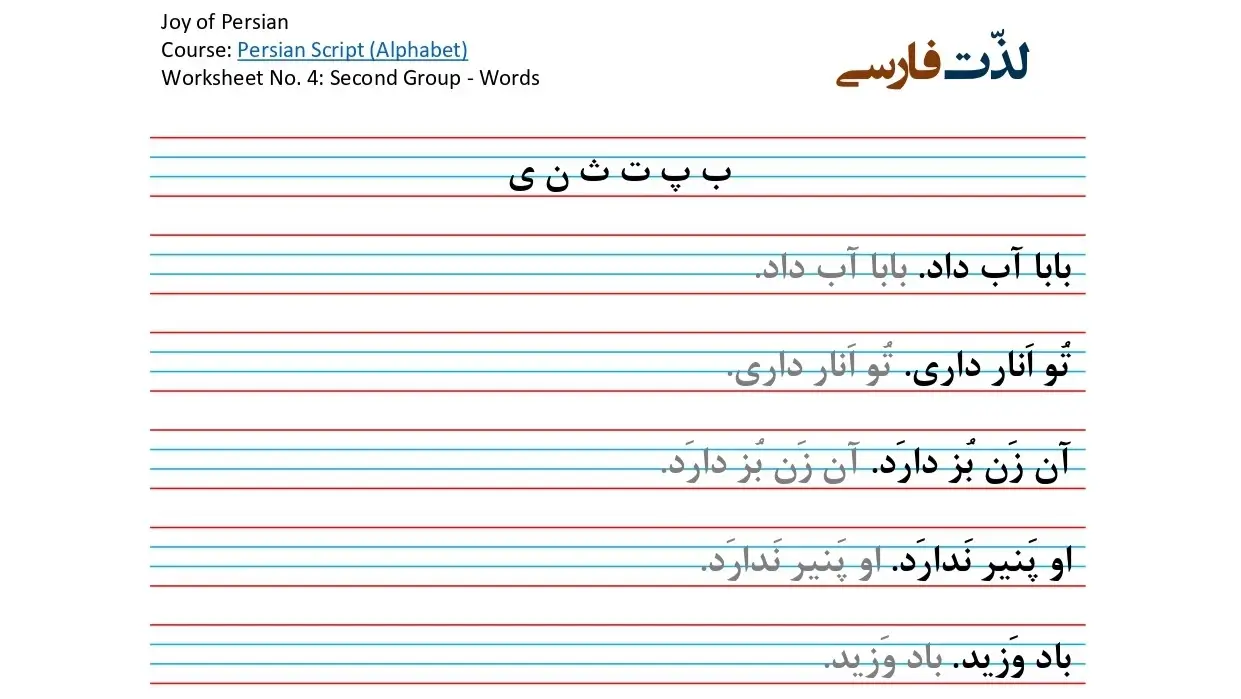 Joy of Persian
Course: Persian Script (Alphabet)
Worksheet No. 4: Second Group - Words
لذّت فارسی
ب پ ت ث ن ی
بابا آب داد. بابا آب داد.
تُو اَنار داری. تُو اَنار داری.
آن زَن بُز دارَد. آن زَن بُز دارَد.
او پَنیر نَدارَد. او پَنیر نَدارَد.
باد وَزید. باد وَزید.